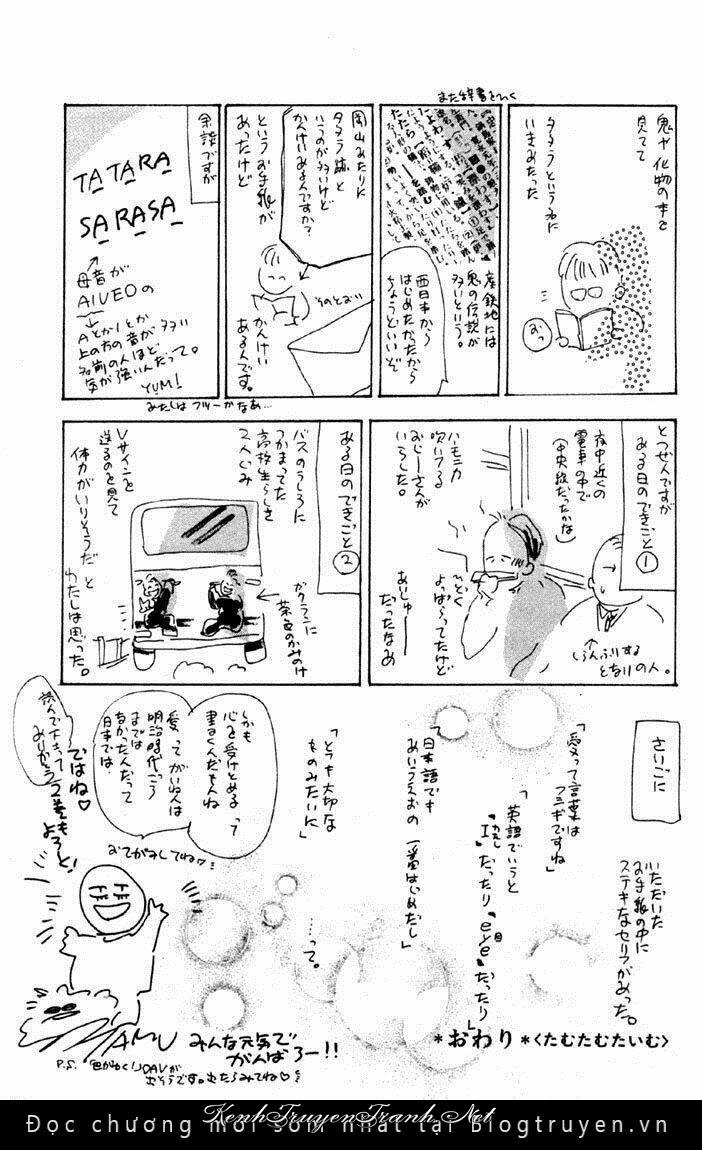 また辞書をいく
鬼や化物の本を
見てて
タタラという名に
いきあたった
おっ
産鉄地には
鬼の伝説が
多いという。
西日本から
はじめたかったから
ちょうどいいぞ
岡山あたりに
タタラ跡と
いうのが多いけど
かんけいあるんですか?
というお手紙が
あったけど
そのとおり
かんけい
あるんです。
余談ですが
TATARA
SARASA
母音が
AIUEOの
AとかIとか
上の方の音が多い
名前の人ほど
気が強いんだって。
YUMI
わたしはブルーかなあ…
とつぜんですが
ある日のできごと①
夜中近くの
電車の中で
(中央線だったかな)
ハーモニカ
吹いてる
おじーさんが
いらした。
ひどく
よっぱらってたけど
あいしゅー
だったなあ
しらんふりする
となりの人。
ある日のできごと②
バスのうしろに
つかまってた
高校生らしき
2人ぐみ
ガクランに
茶色のかみのけ
Vサインを
送るのを見て
体力がいりそうだ と
わたしは思った。
さいごに
いただいた
お手紙の中に
ステキなセリフがあった。
「愛って言葉は
フシギですね」
「英語でいうと
"I"だったり"eye"だったり」
「日本語でも
あいうえおの 一番はじめだし」
「とても大切な
ものみたいに」
……って。
しかも
心を受けとめる って
書くんだもんね
愛 ってがいねんは
明治時代ごろ
までは
日本では
なかったんだって
おてがみしてね♡
読んで下さって
ありがとう
ではね♡
2巻もも
よろしく!
みんな元気で
がんばろー!!
*おわり*<たむたむたいむ>
KenhTruyenTranh.Net
Đọc chương mới sớm nhất tại blogtruyen.vn